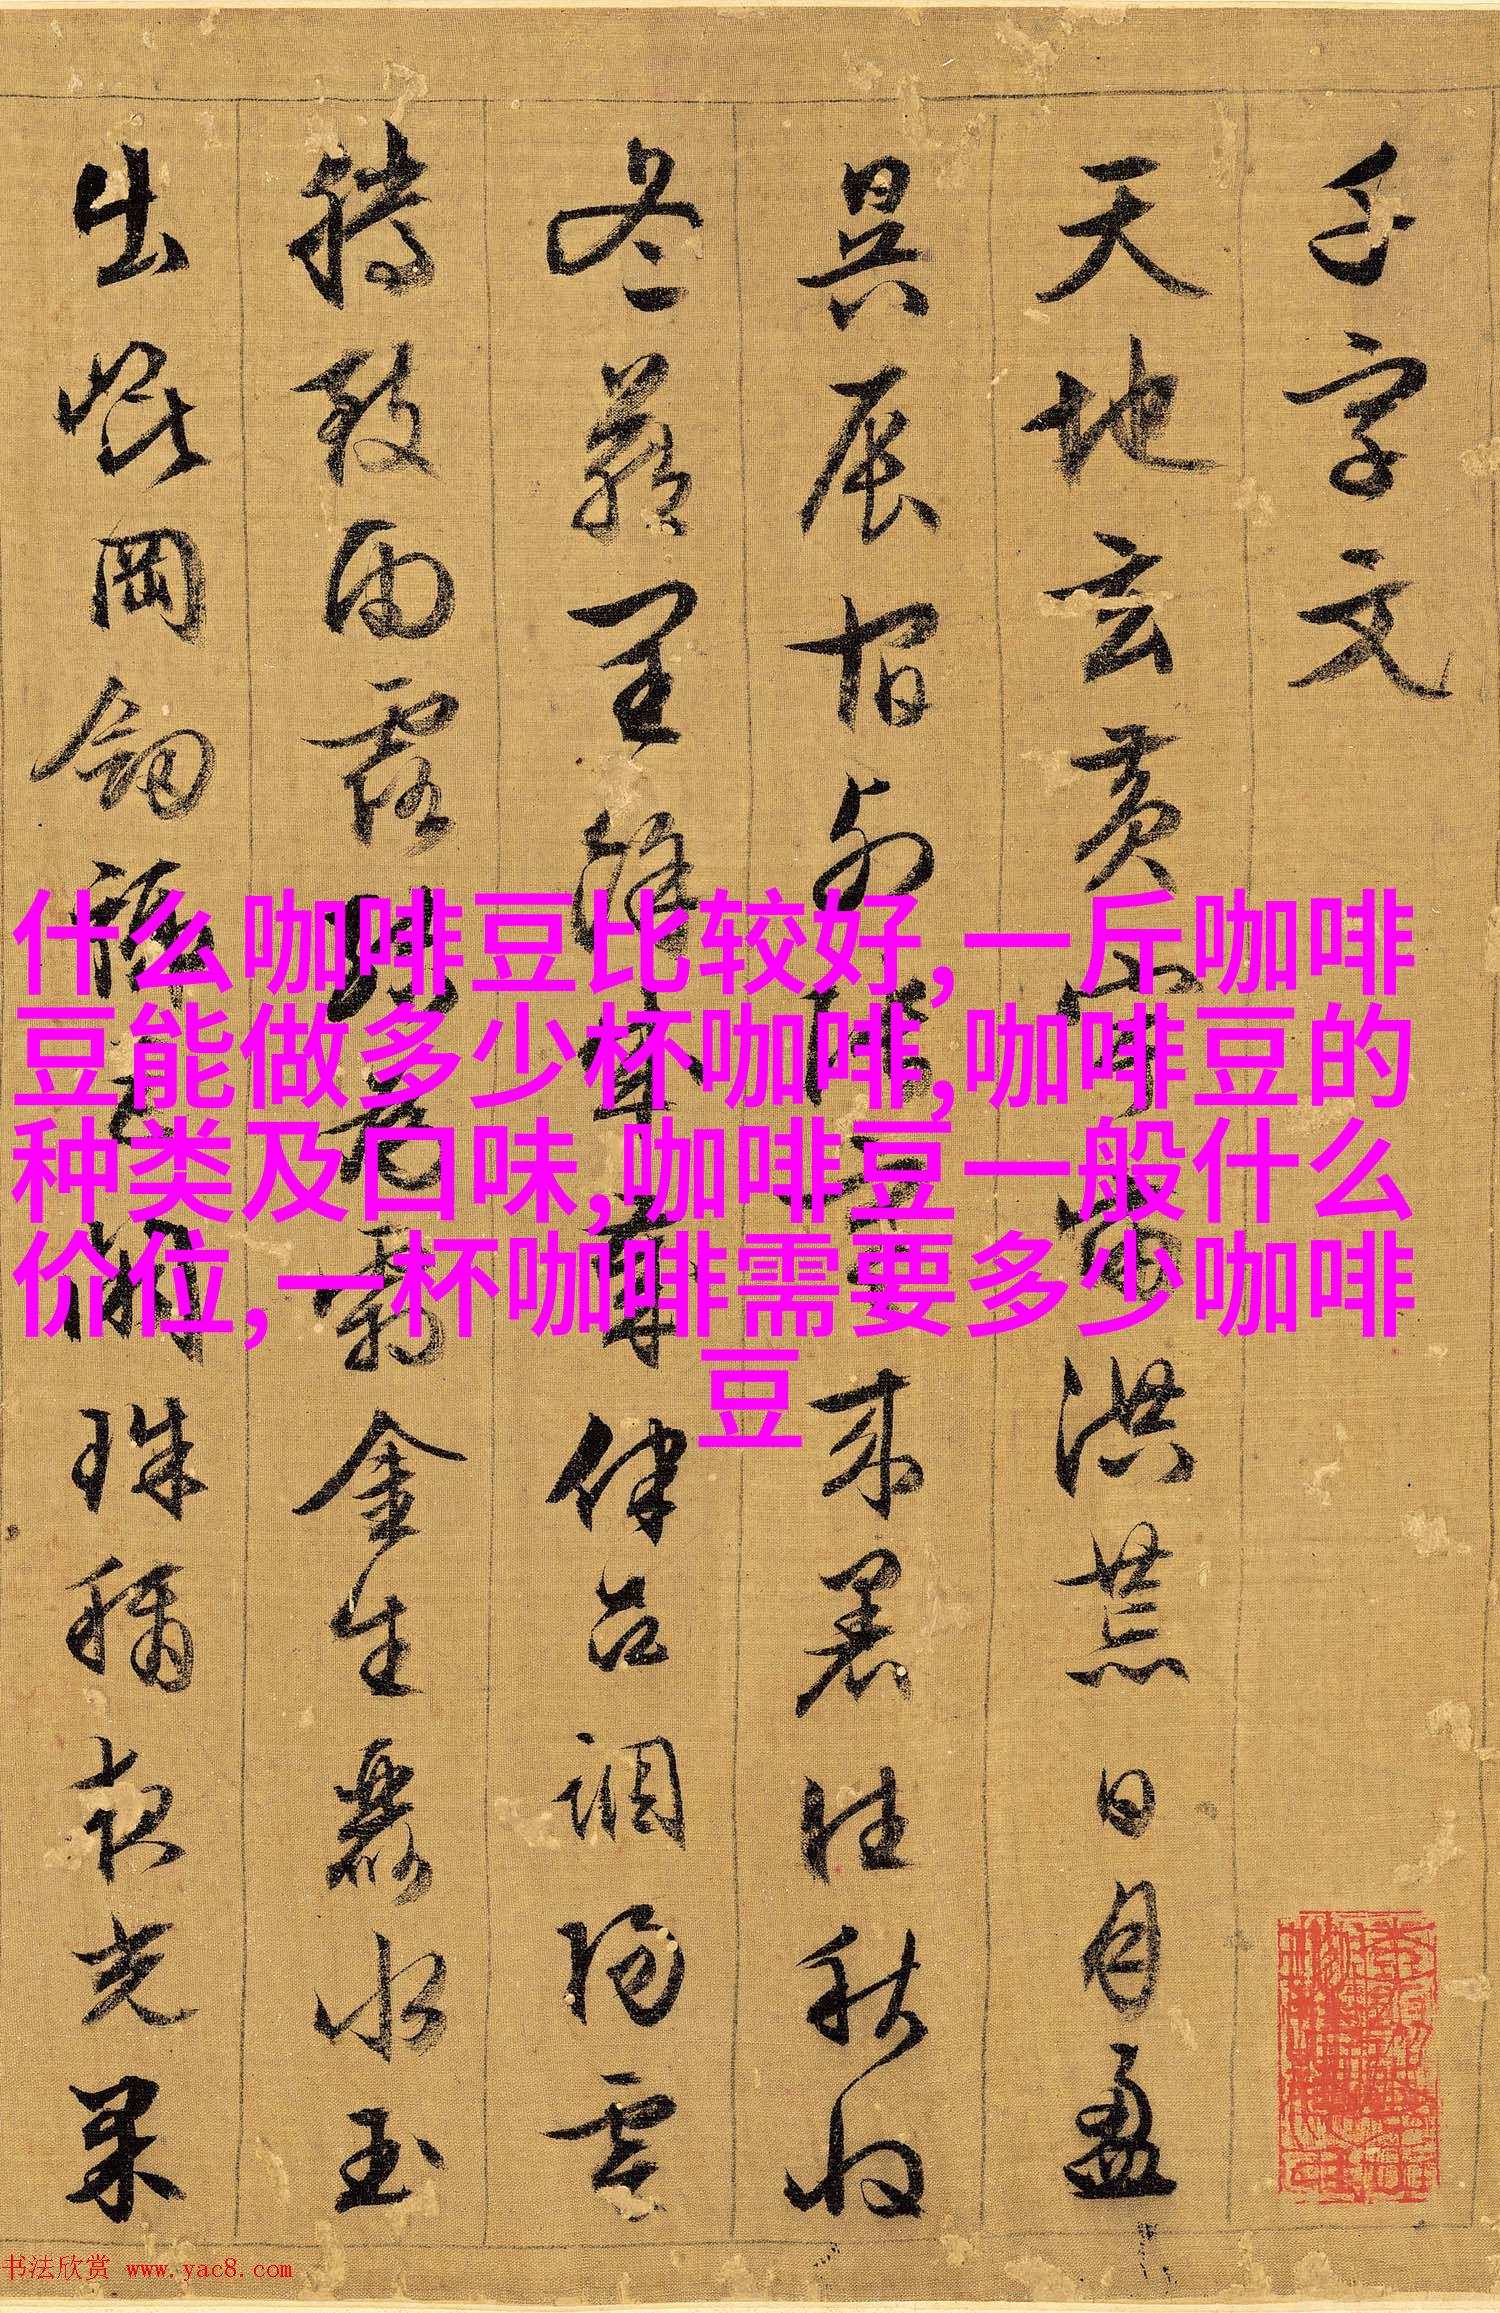 千字文
天地玄黄宇宙洪荒日月盈
昃辰宿列張寒来暑往秋收
冬蔵閏餘成歲律吕調陽雲
騰致雨露結為霜金生麗水玉
出崑岡劒號巨闕珠稱夜光果
什么咖啡豆比较好,一斤咖啡
豆能做多少杯咖啡,咖啡豆的
种类及口味,咖啡豆一般什么
价位,一杯咖啡需要多少咖啡
豆
书法欣赏 www.yac8.com